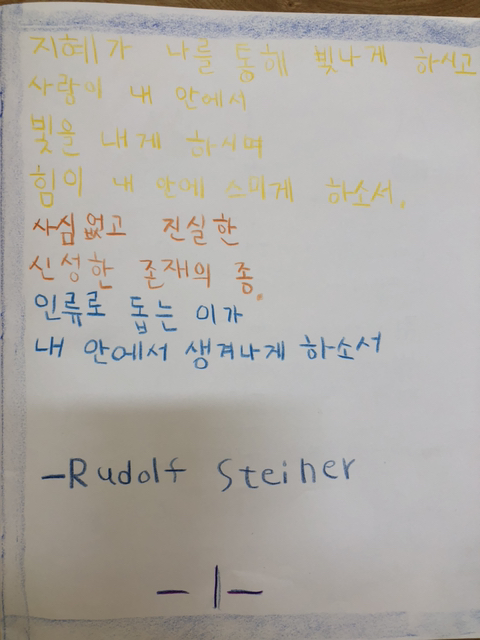 지혜가 나를 통해 빛나게 하시고
사랑이 내 안에서
빛을 내게 하시며
힘이 내 안에 스미게 하소서.
사심없고 진실한
신성한 존재의 종.
인류로 돕는 이가
내 안에서 생겨나게 하소서
-Rudolf Steiner
- 1 -